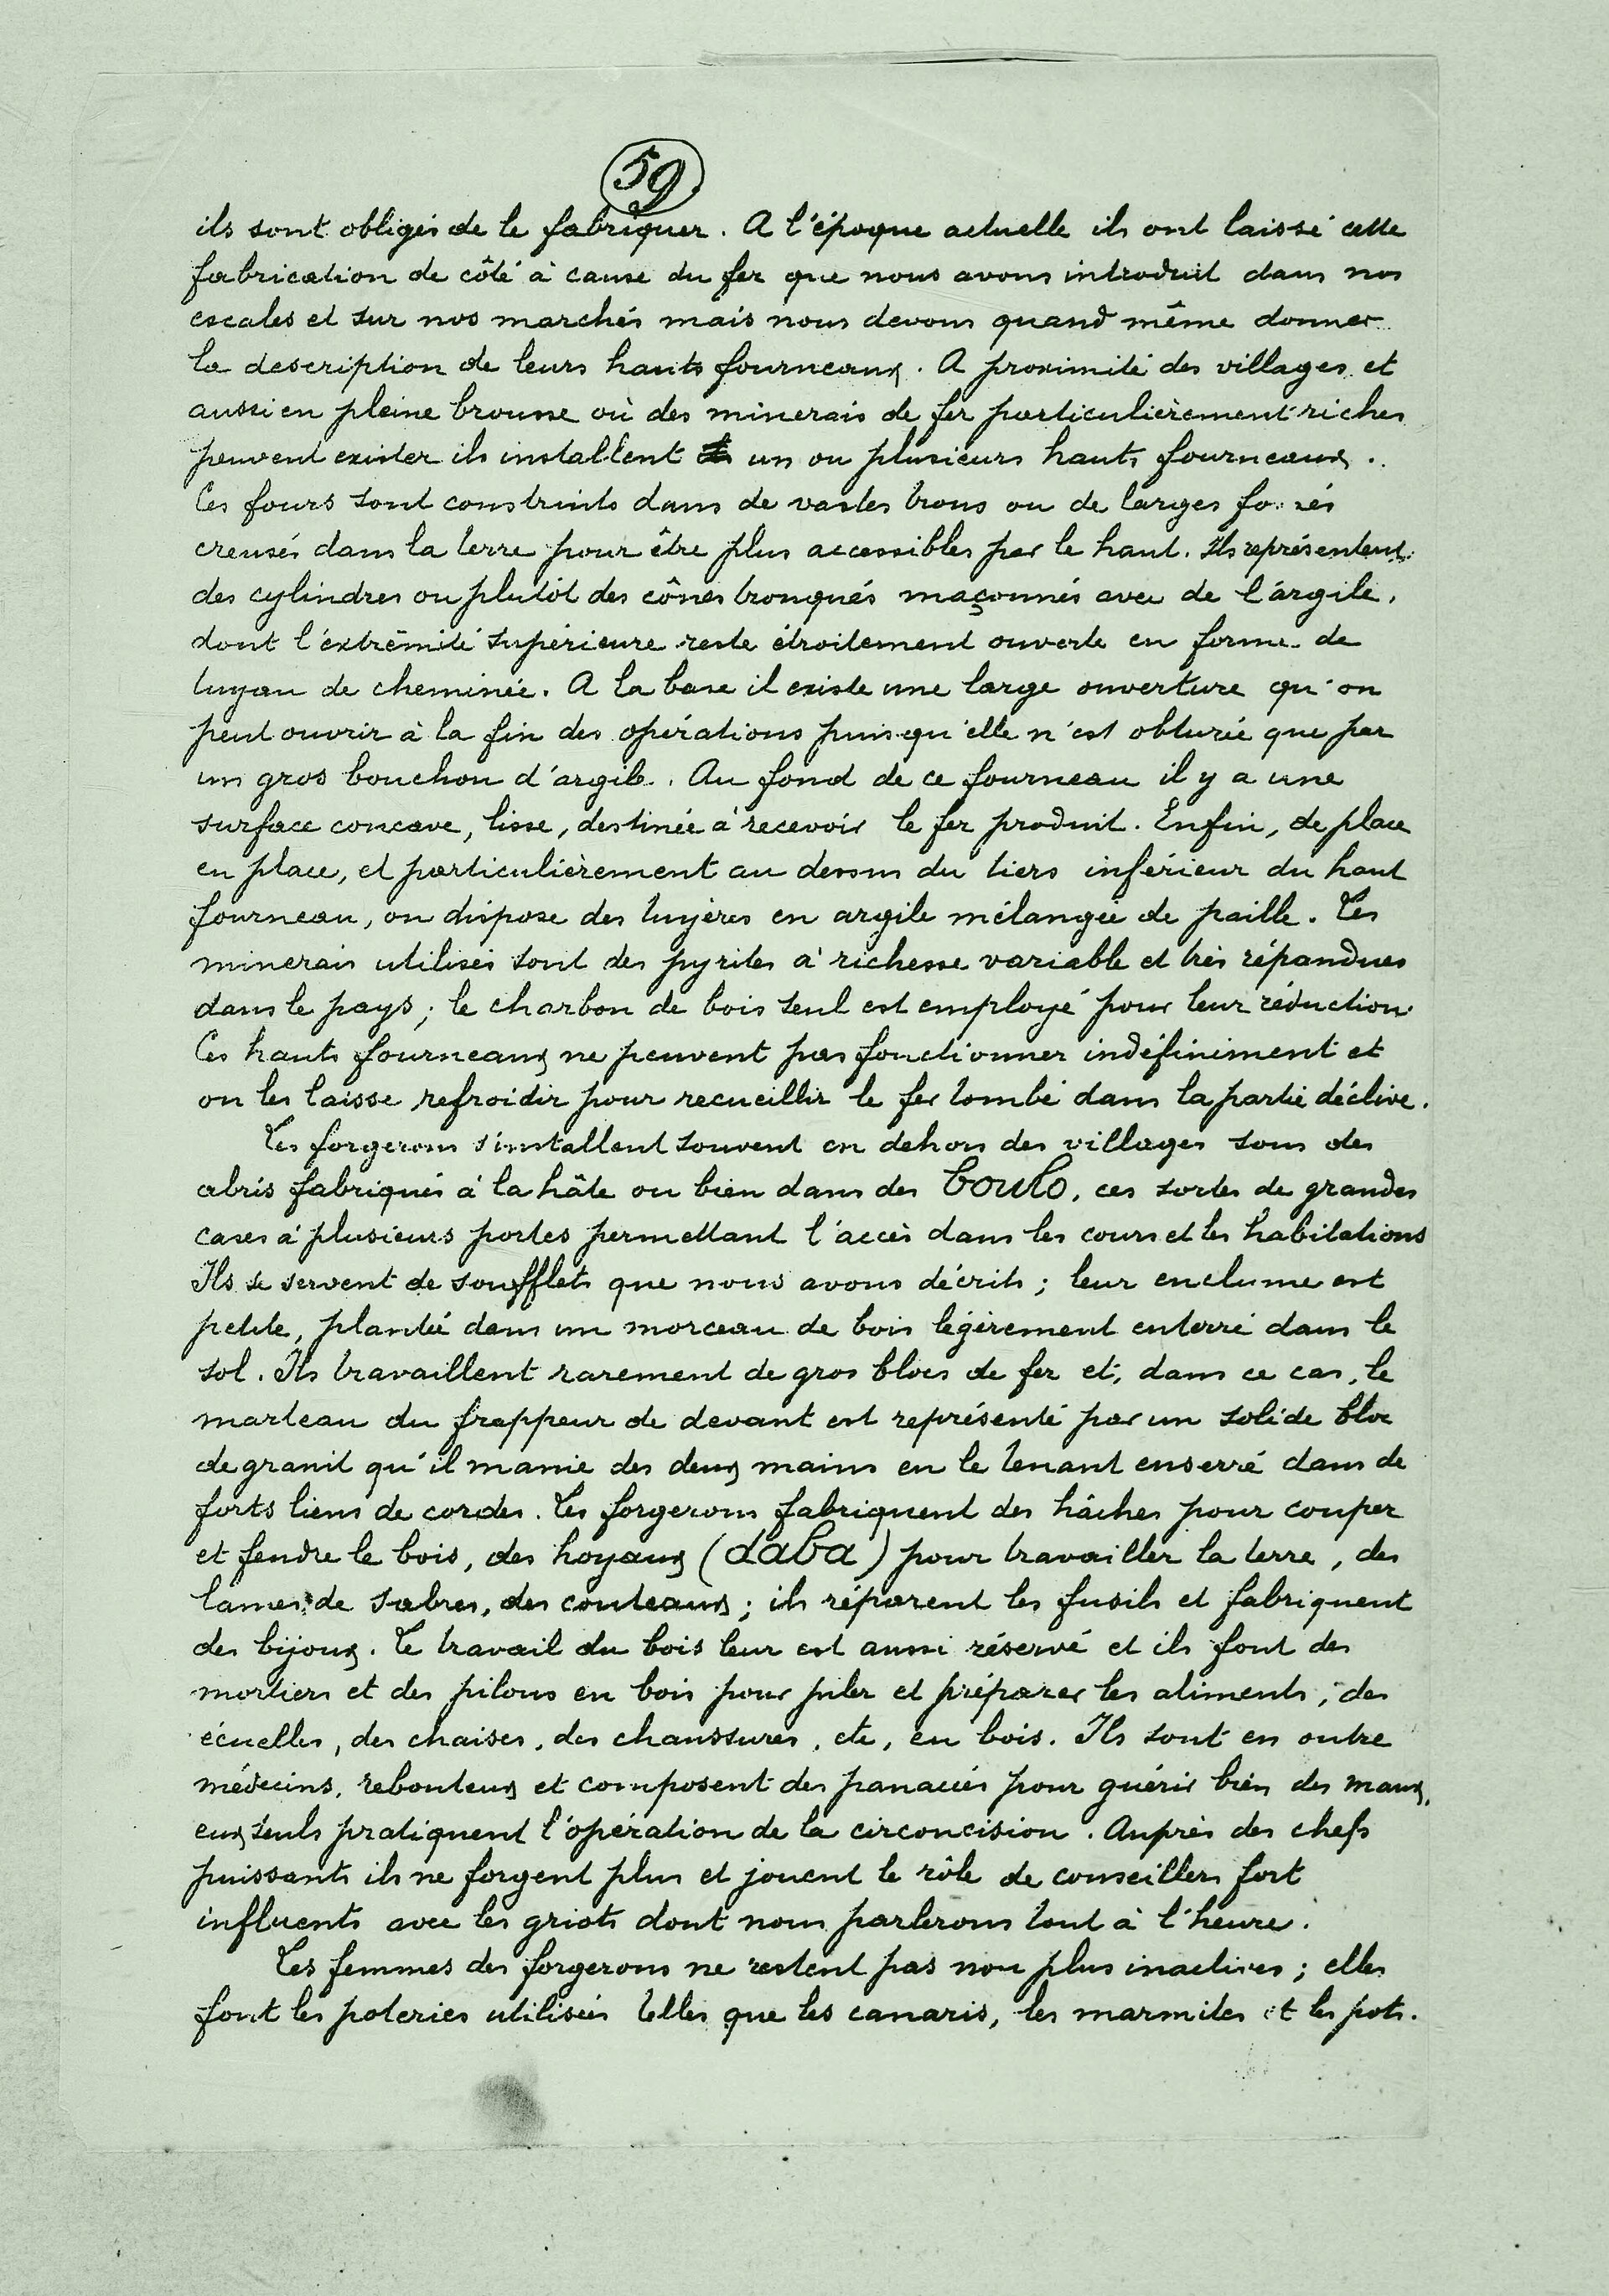 59
ils sont obligés de le fabriquer. A l'époque actuelle ils ont laissé cette
fabrication de côté à cause du fer que nous avons introduit dans nos
escales et sur nos marchés mais nous devons quand même donner
la description de leurs hauts fourneaux. A proximité des villages et
aussi en pleine brousse où des minerais de fer particulièrement riches
peuvent exister ils installent un ou plusieurs hauts fourneaux.
Ces fours sont construits dans de vastes trous ou de larges fossés
creusés dans la terre pour être plus accessibles par le haut. Ils représentent
des cylindres ou plutôt des cônes tronqués maçonnés avec de l'argile,
dont l'extrêmité supérieure reste étroitement ouverte en forme de
tuyau de cheminée. A la base il existe une large ouverture qu'on
peut ouvrir à la fin des opérations puisqu'elle n'est obturée que par
un gros bouchon d'argile. Au fond de ce fourneau il y a une
surface concave, lisse, destinée à recevoir le fer produit. Enfin, de place
en place, et particulièrement au dessus du tiers inférieur du haut
fourneau, on dispose des tuyères en argile mélangée de paille. Les
minerais utilisés sont des pyrites à richesse variable et très répandues
dans le pays; le charbon de bois seul est employé pour leur réduction.
Ces hauts fourneaux ne peuvent pas fonctionner indéfiniment et
on les laisse refroidir pour recueillir le fer tombé dans la partie déclive.
Les forgerons s'installent souvent en dehors des villages sous des
abris fabriqués à la hâte ou bien dans des boulo, ces sortes de grandes
cases à plusieurs portes permettant l'accès dans les cours et les habitations
Ils se servent de soufflets que nous avons décrits; leur enclume est
petite, plantée dans un morceau de bois légèrement enterré dans le
sol. Ils travaillent rarement de gros blocs de fer et, dans ce cas, le
marteau du frappeur de devant est représenté par un solide bloc
de granit qu'il manie des deux mains en le tenant enserré dans de
forts liens de cordes. Les forgerons fabriquent des hâches pour couper
et fendre le bois, des hoyaux (daba) pour travailler la terre, des
lames de sabres, des couteaux; ils réparent les fusils et fabriquent
des bijoux. Le travail du bois leur est aussi réservé et ils font des
mortiers et des pilons en bois pour piler et préparer les aliments, des
écuelles, des chaises, des chaussures, etc, en bois. Ils sont en outre
médecins, rebouteux et composent des panacées pour guérir bien des maux,
eux seuls pratiquent l'opération de la circoncision. Auprès des chefs
puissants ils ne forgent plus et jouent le rôle de conseillers fort
influents avec les griots dont nous parlerons tout à l'heure.
Les femmes des forgerons ne restent pas non plus inactives; elles
font les poteries utilisées telles que les canaris, les marmites et les pots.